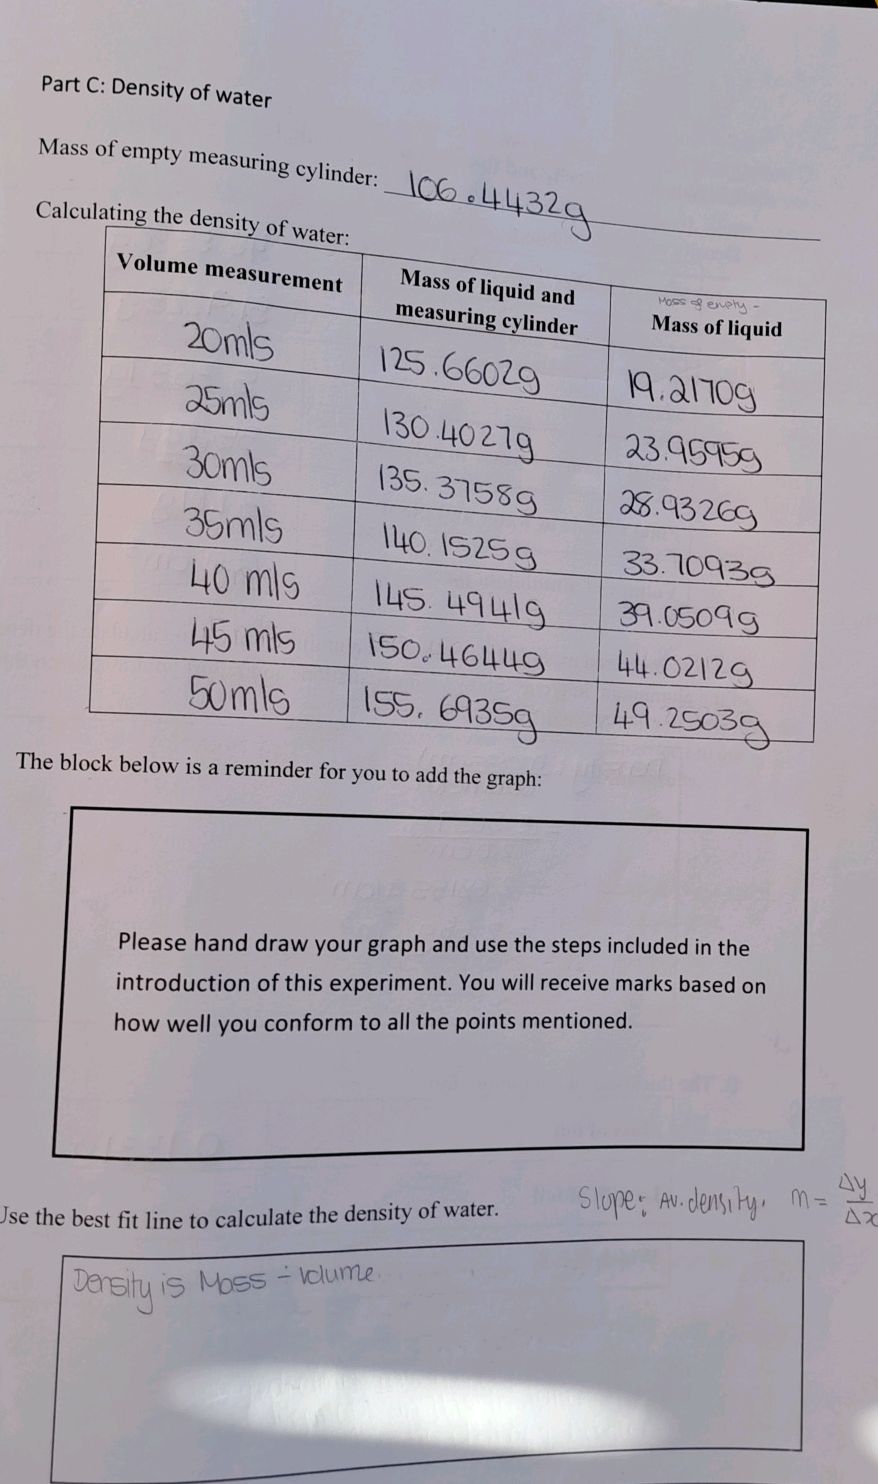 Part C: Density of water
Mass of empty measuring cylinder: 106.4432g
Calculating the density of water:
Volume measurement Mass of liquid and measuring cylinder Mass of empty - Mass of liquid
20mls 125.6602g 19.2170g
25mls 130.4027g 23.9595g
30mls 135.3758g 28.9326g
35mls 140.1525g 33.7093g
40 mls 145.4941g 39.0509g
45 mls 150.4644g 44.0212g
50mls 155.6935g 49.2503g
The block below is a reminder for you to add the graph:
Please hand draw your graph and use the steps included in the
introduction of this experiment. You will receive marks based on
how well you conform to all the points mentioned.
Slope: Av. density. m = Δy/Δx
Use the best fit line to calculate the density of water.
Density is Mass ÷ volume.